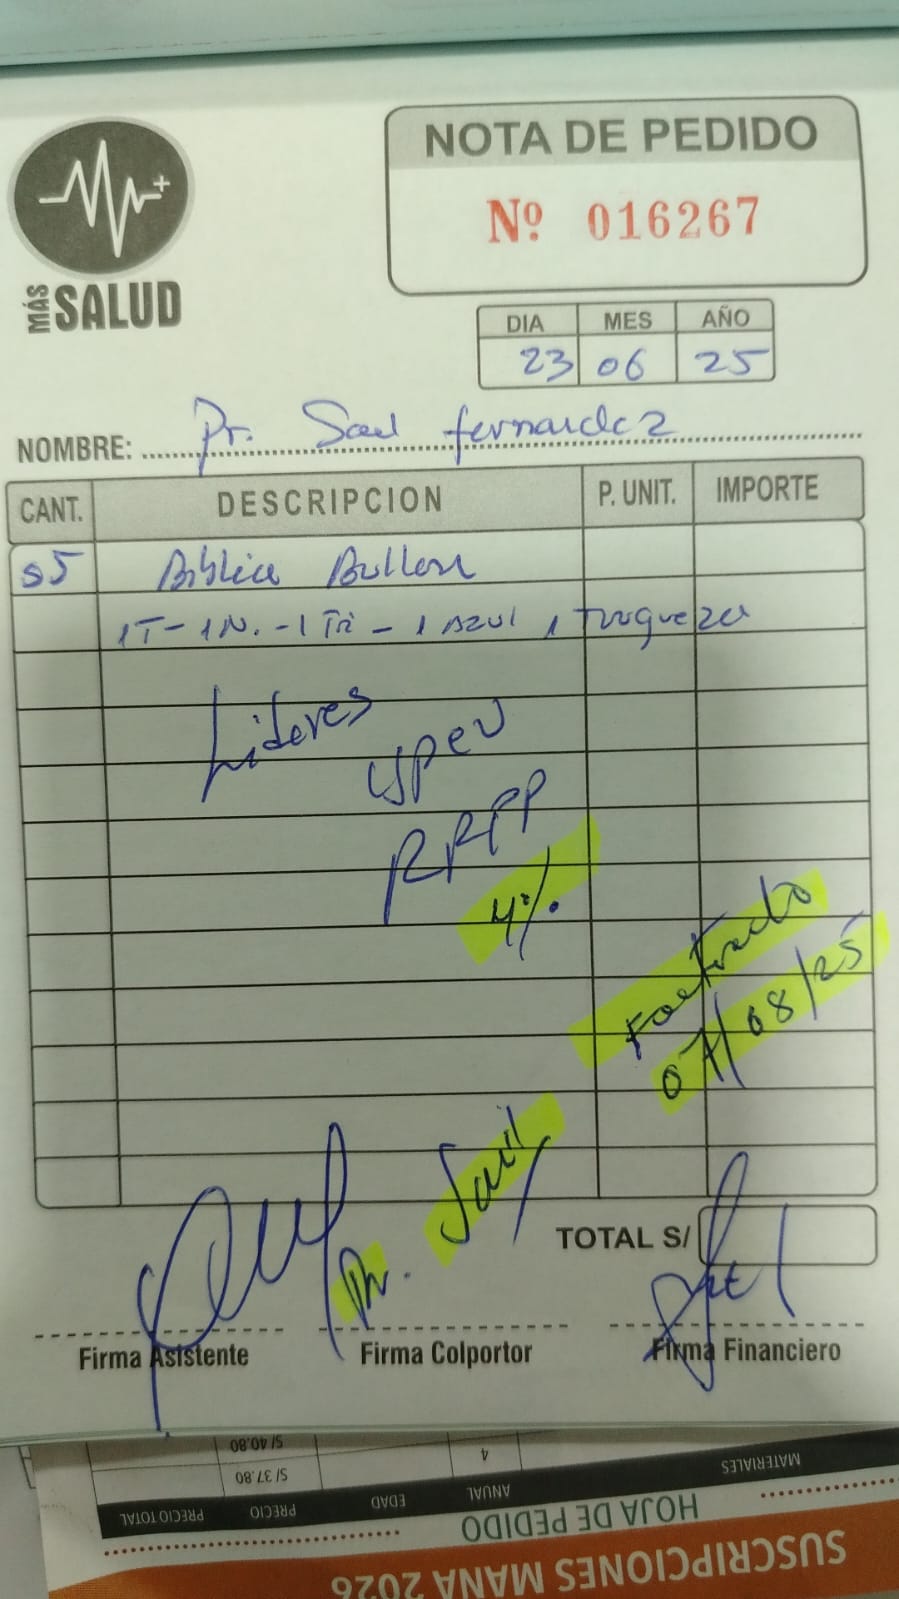 NOTA DE PEDIDO
Nº 016267
MÁS SALUD
DIA MES AÑO
23 06 25
NOMBRE: Pr. Saul fernandez
CANT. DESCRIPCION P. UNIT. IMPORTE
05 Biblia Bullon
1T - 1N. - 1 Tri - 1 AZUL 1 Turqueza
Lideres
UPeU
RRPP
4%.
Facturado
07/08/25
Pr. Saúl
TOTAL S/
Firma Asistente Firma Colportor Firma Financiero
S/ 40.80
4 S/ 37.80
MATERIALES ANUAL EDAD PRECIO PRECIO TOTAL
HOJA DE PEDIDO
SUSCRIPCIONES MANA 2026